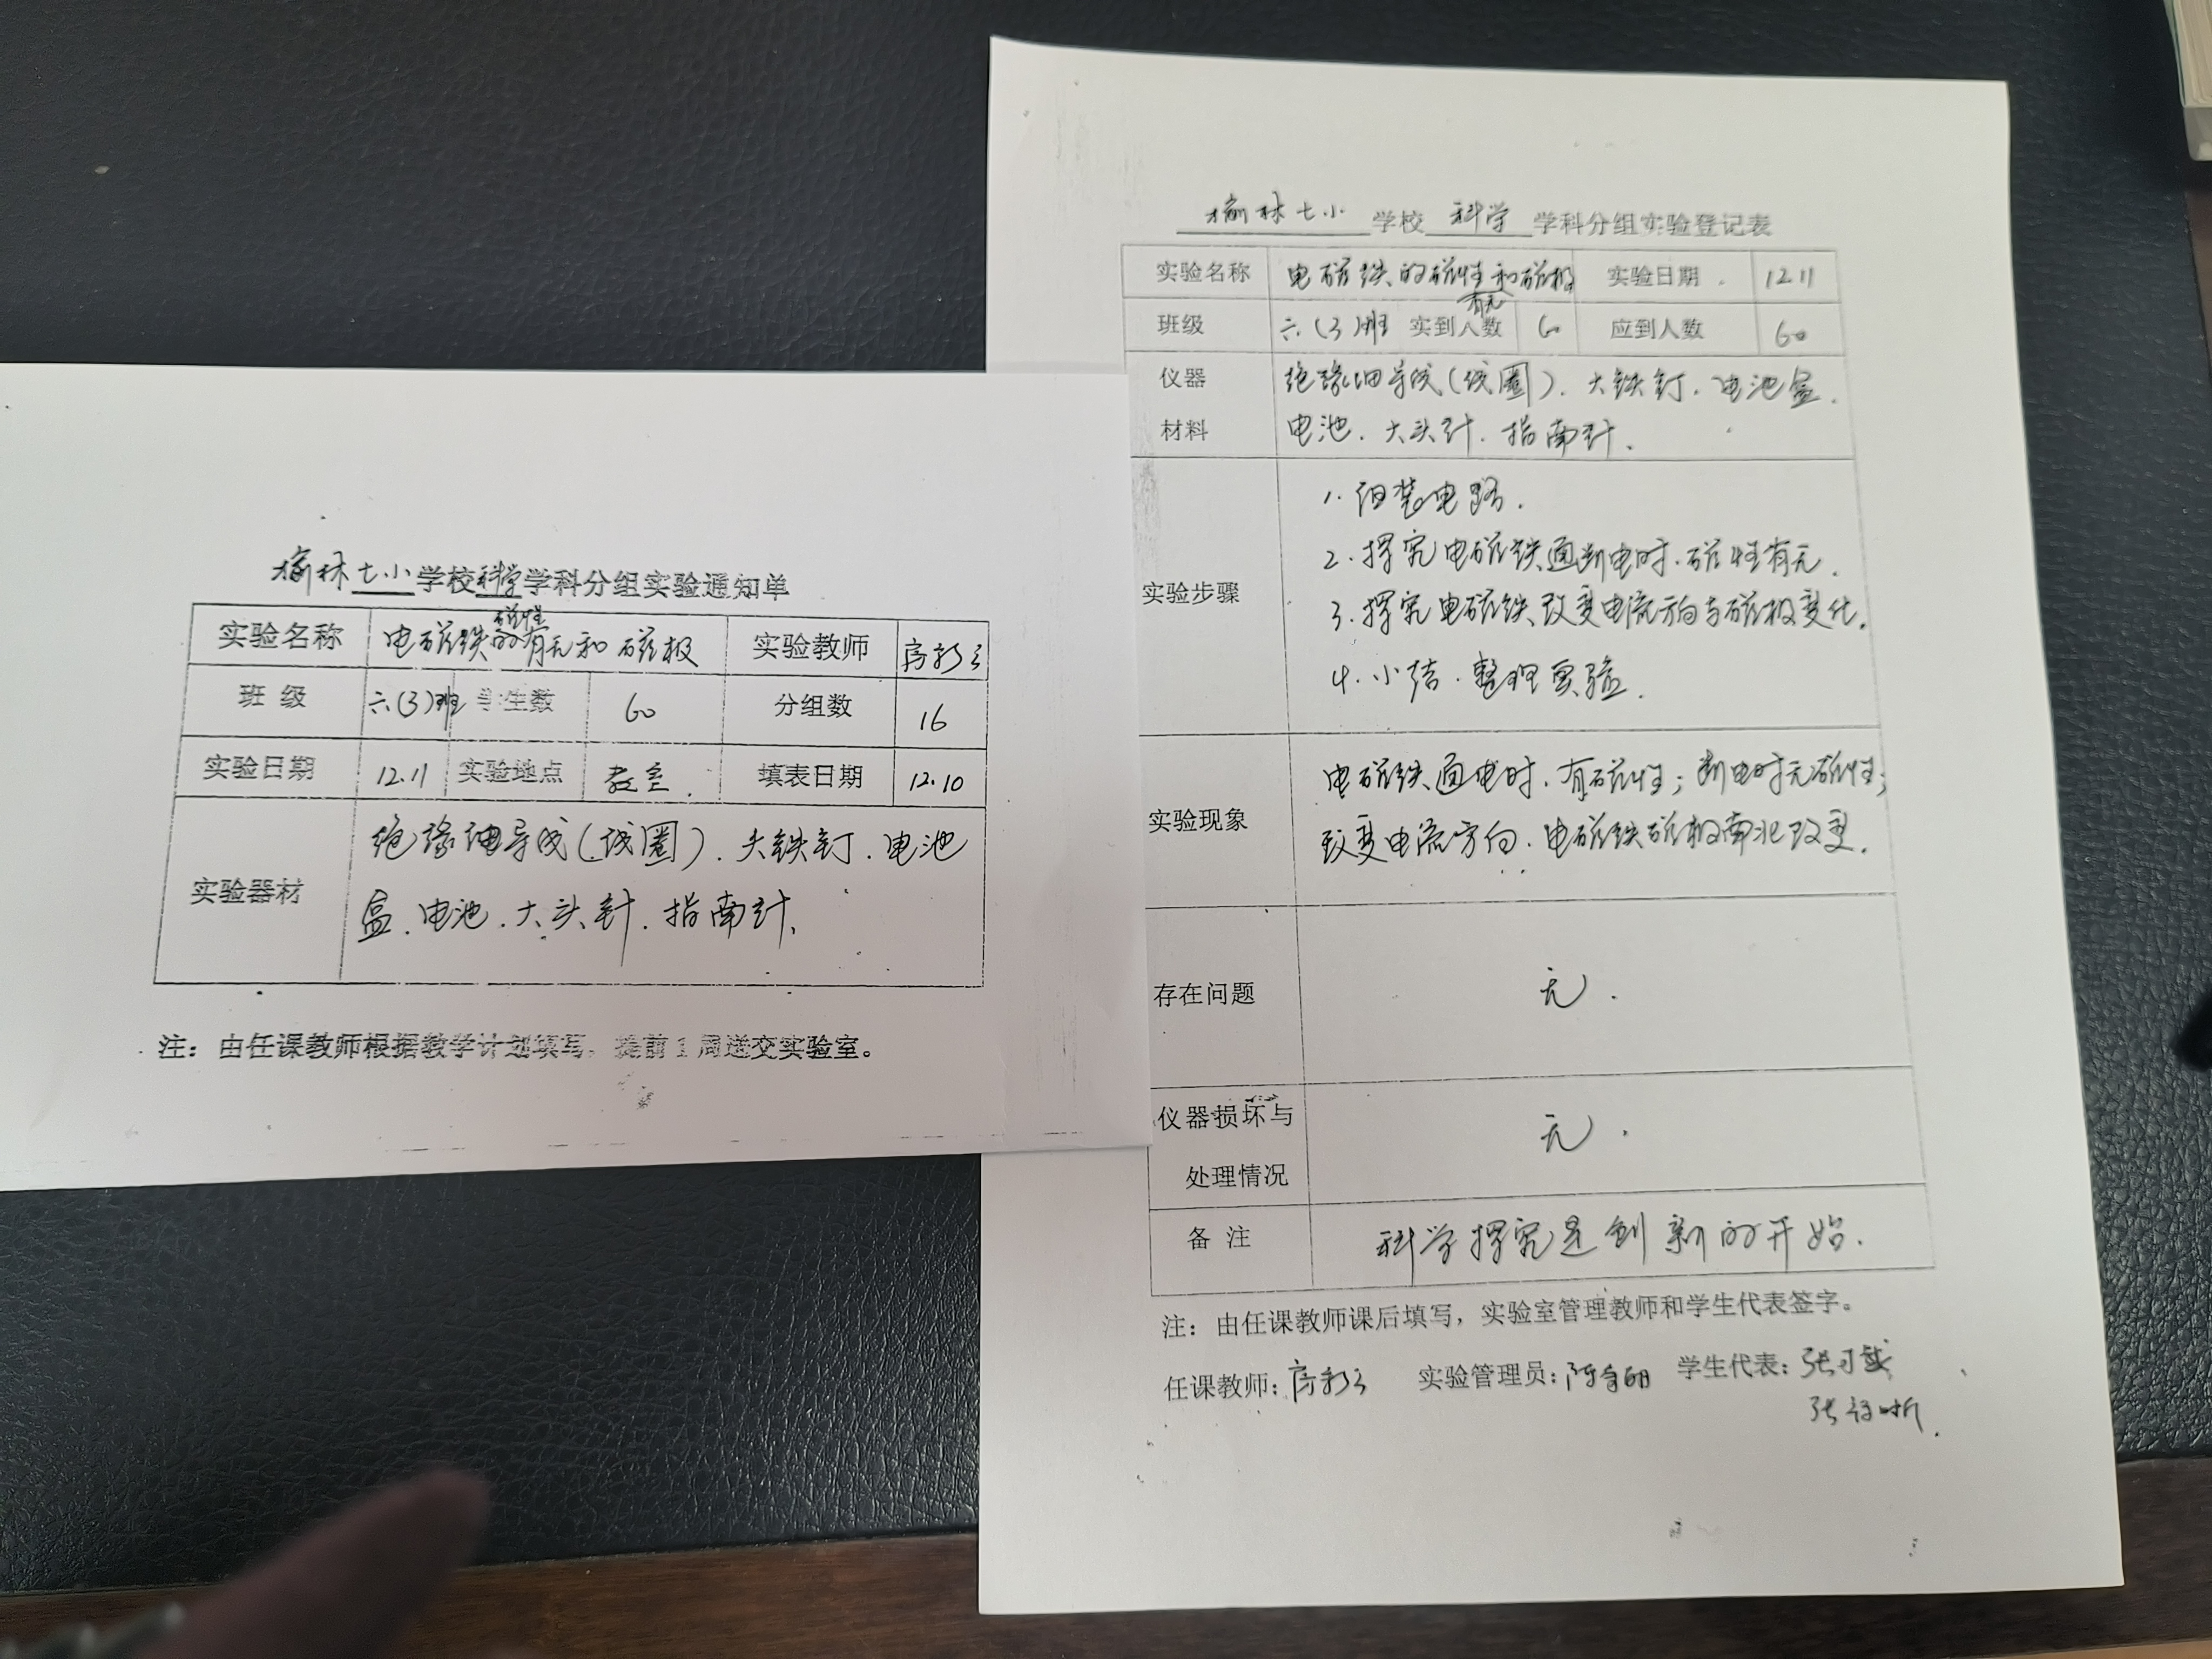 榆林七小学校科学学科分组实验通知单
实验名称 电磁铁的磁性有无和磁极 实验教师
班 级 六(3)班 学生数 60 分组数 16
实验日期 12.11 实验地点 教室. 填表日期 12.10
实验器材
绝缘细导线(线圈).大铁钉.电池
盒.电池.大头针.指南针.
注：由任课教师根据教学计划填写，提前1周递交实验室。
榆林七小 学校 科学 学科分组实验登记表
实验名称 电磁铁的磁性有无和磁极 实验日期 12.11
班级 六(3)班 实到人数 60 应到人数 60
仪器 绝缘细导线(线圈).大铁钉.电池盒.
材料 电池.大头针.指南针.
实验步骤
1.组装电路.
2.探究电磁铁通断电时.磁性有无.
3.探究电磁铁改变电流方向与磁极变化.
4.小结.整理实验.
实验现象
电磁铁通电时.有磁性;断电时无磁性;
改变电流方向.电磁铁磁极南北改变.
存在问题 无.
仪器损坏与 无.
处理情况
备 注 科学探究是创新的开始.
注：由任课教师课后填写，实验室管理教师和学生代表签字。
任课教师: 实验管理员: 学生代表: